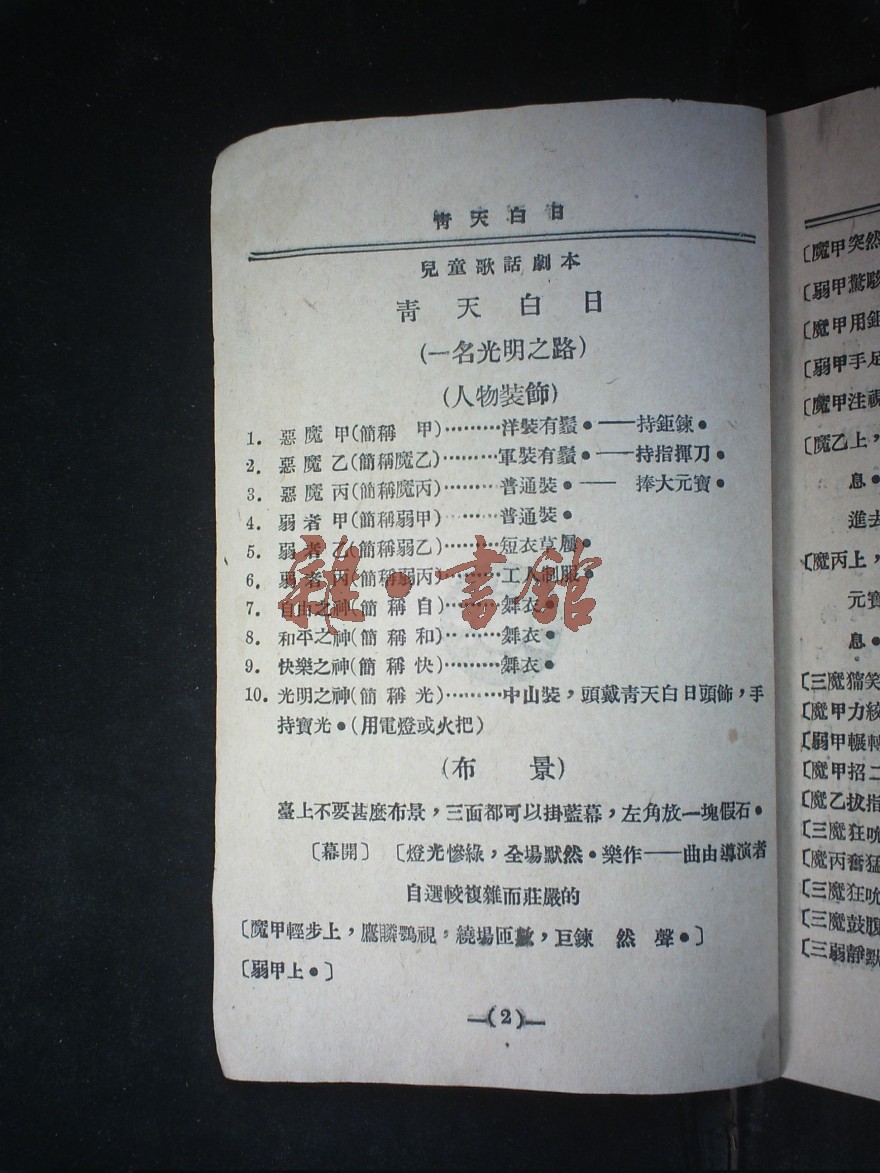 青天白日
兒童歌話劇本
青天白日
(一名光明之路)
(人物裝飾)
1. 惡魔甲(簡稱 甲)………洋裝有鬚●——持鉅鍊●
2. 惡魔乙(簡稱魔乙)………軍裝有鬚●——持指揮刀●
3. 惡魔丙(簡稱魔丙)………普通裝●—— 捧大元寶●
4. 弱者甲(簡稱弱甲)………普通裝●
5. 弱者乙(簡稱弱乙)………短衣草履●
6. 弱者丙(簡稱弱丙)………工人制服●
7. 自由之神(簡稱自)………舞衣●
8. 和平之神(簡稱和)………舞衣●
9. 快樂之神(簡稱快)………舞衣●
10. 光明之神(簡稱光)………中山裝，頭戴青天白日頭飾，手
持寶光●(用電燈或火把)
(布 景)
臺上不要甚麼布景，三面都可以掛藍幕，左角放一塊假石●
〔幕開〕〔燈光慘綠，全場默然●樂作——曲由導演者
自選較複雜而莊嚴的
〔魔甲輕步上，鷹瞵鶚視，繞場匝數，巨鍊 然 聲●〕
〔弱甲上●〕
—(2)—
雜·書館
〔魔甲突然
〔弱甲驚駭
〔魔甲用鉅
〔弱甲手足
〔魔甲注視
〔魔乙上，
息●
進去
〔魔丙上，
元寶
息●
〔三魔獰笑
〔魔甲力絞
〔弱甲輾轉
〔魔甲招二
〔魔乙拔指
〔三魔狂吮
〔魔丙奮猛
〔三魔狂吮
〔三魔鼓腹
〔三弱靜默